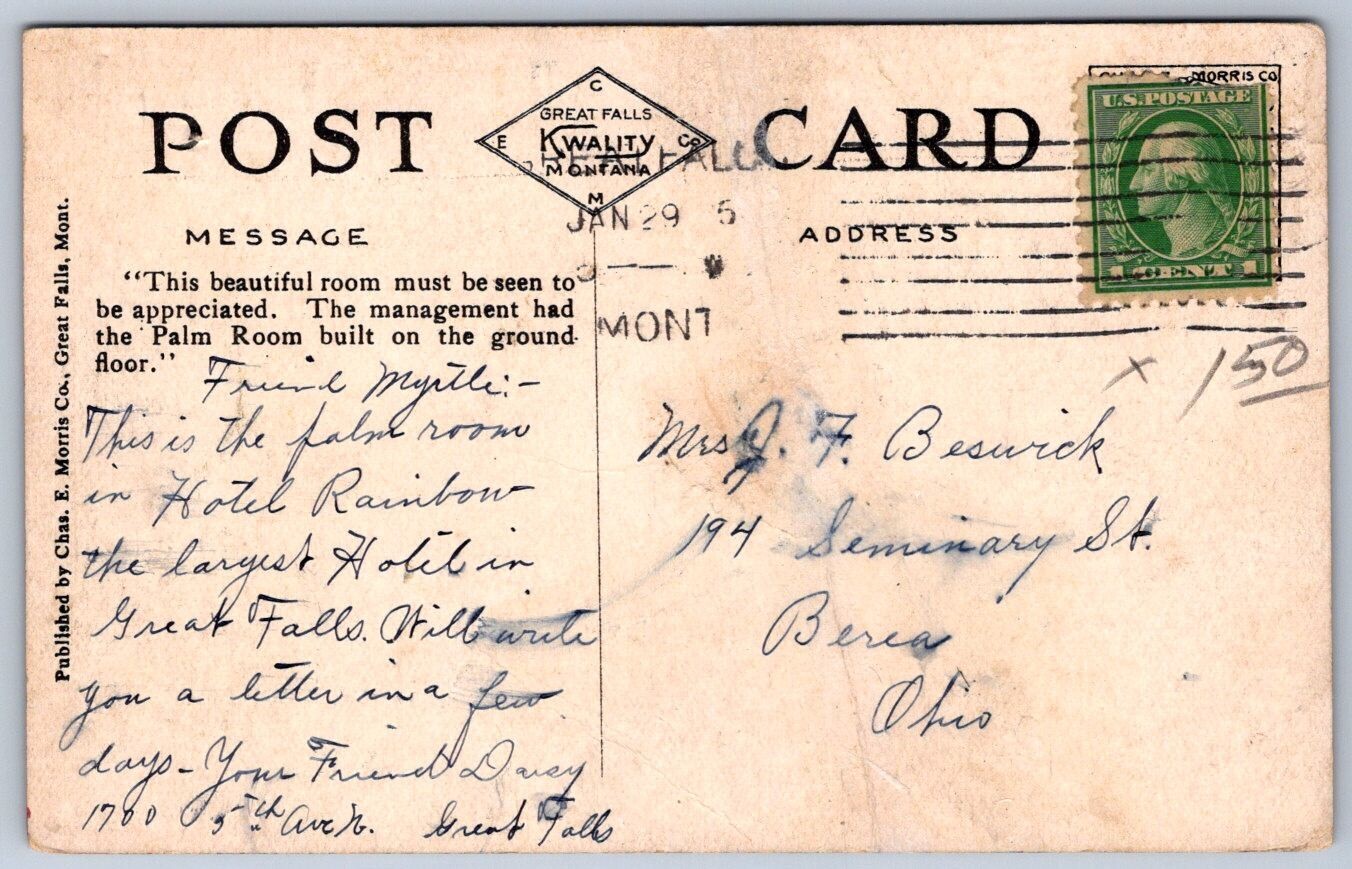 POST CARD
C
GREAT FALLS
E KWALITY Co
MONTANA
M
MORRIS CO
U.S. POSTAGE
1 CENT 1
GREAT FALLS
JAN 29 5
MONT
MESSAGE
ADDRESS
"This beautiful room must be seen to
be appreciated. The management had
the Palm Room built on the ground
floor."
Friend Myrtle:-
This is the palm room
in Hotel Rainbow
the largest Hotel in
Great Falls. Will write
you a letter in a few
days - Your Friend Daisy
1700 5th Ave N. Great Falls
x 150
Mrs J. F. Beswick
194 Seminary St.
Berea
Ohio
Published by Chas. E. Morris Co., Great Falls, Mont.